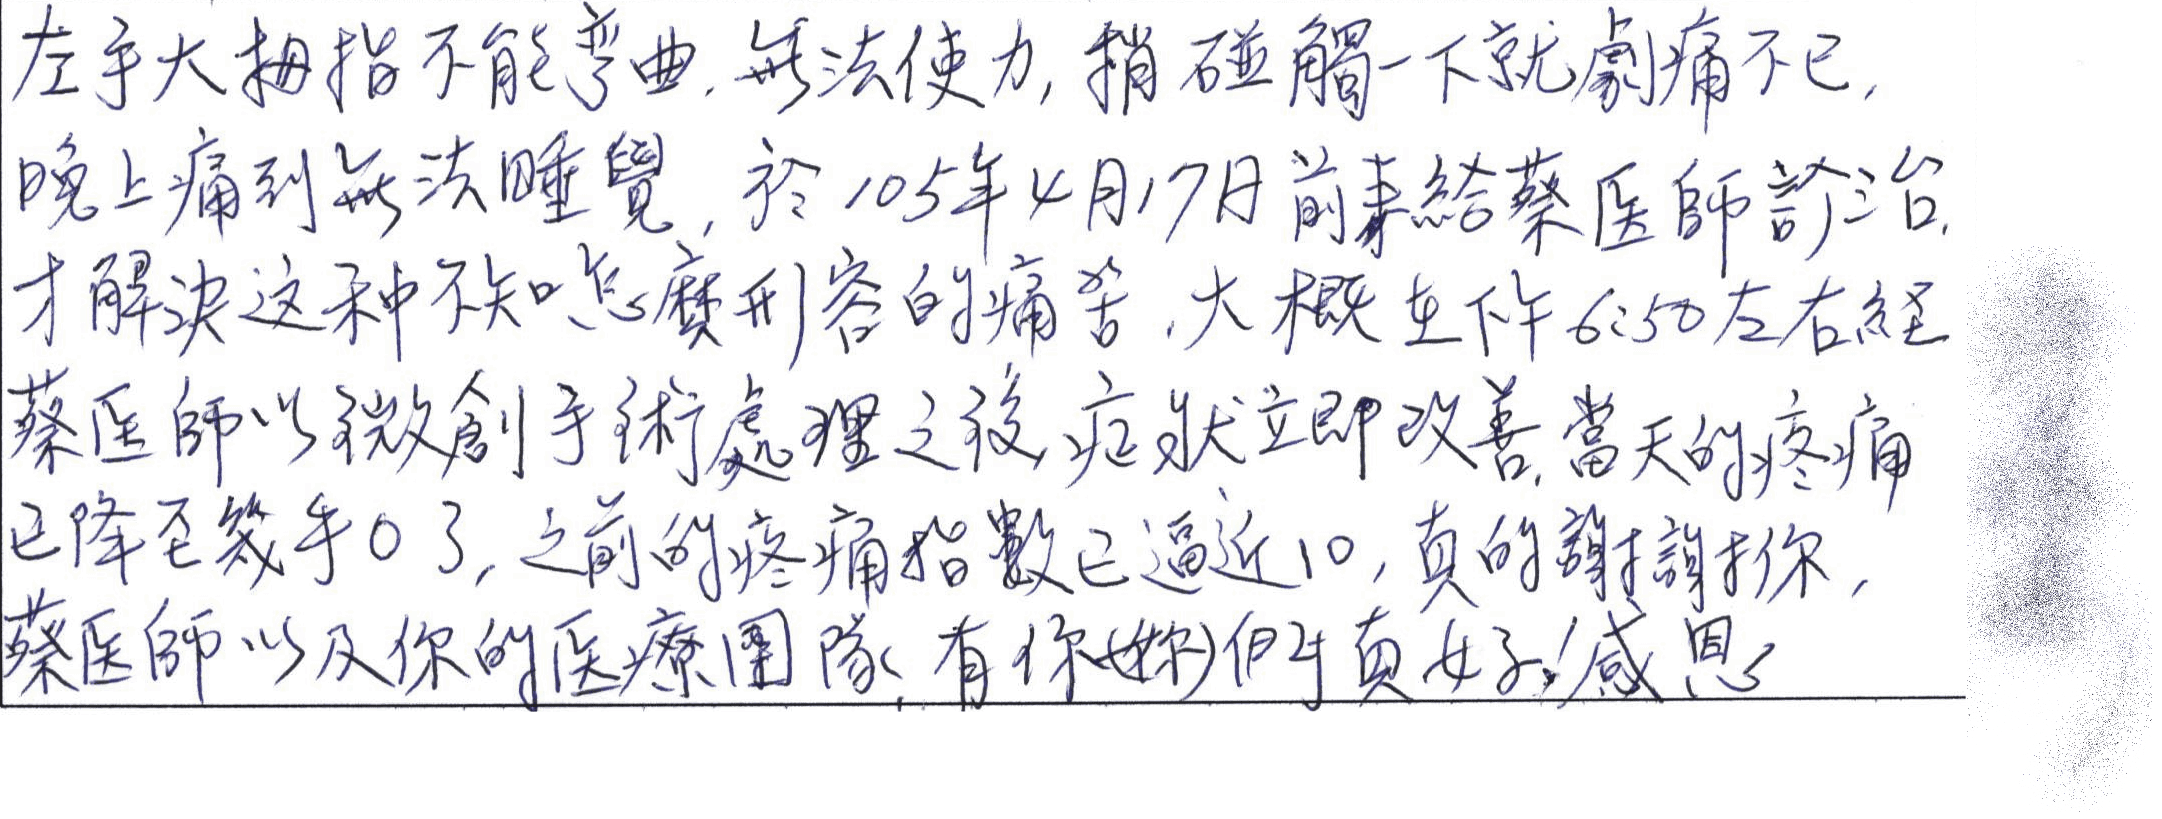 左手大拇指不能弯曲.無法使力,稍碰觸一下就劇痛不已,
晚上痛到無法睡覺,於105年4月17日前來給蔡医師診治,
才解決这种不知怎麼形容的痛苦.大概在下午6:50左右経
蔡医師以微創手術處理之後,症狀立即改善,當天的疼痛
已降至幾乎0了,之前的疼痛指數已逼近10,真的謝謝你,
蔡医師以及你的医療團隊,有你(妳)們真好!感恩